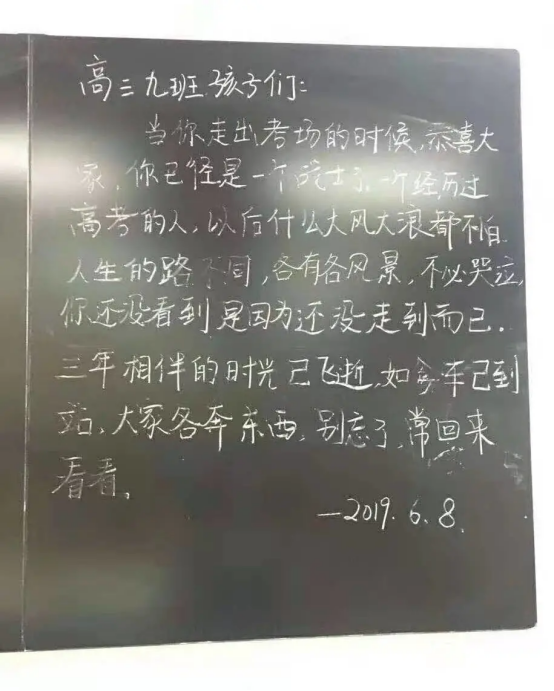 高三九班孩子们:
当你走出考场的时候,恭喜大
家,你已经是一个战士了,一个经历过
高考的人,以后什么大风大浪都不怕.
人生的路不同,各有各风景,不必哭泣,
你还没看到是因为还没走到而已.
三年相伴的时光已飞逝,如今车已到
站,大家各奔东西,别忘了,常回来
看看。
—2019.6.8.